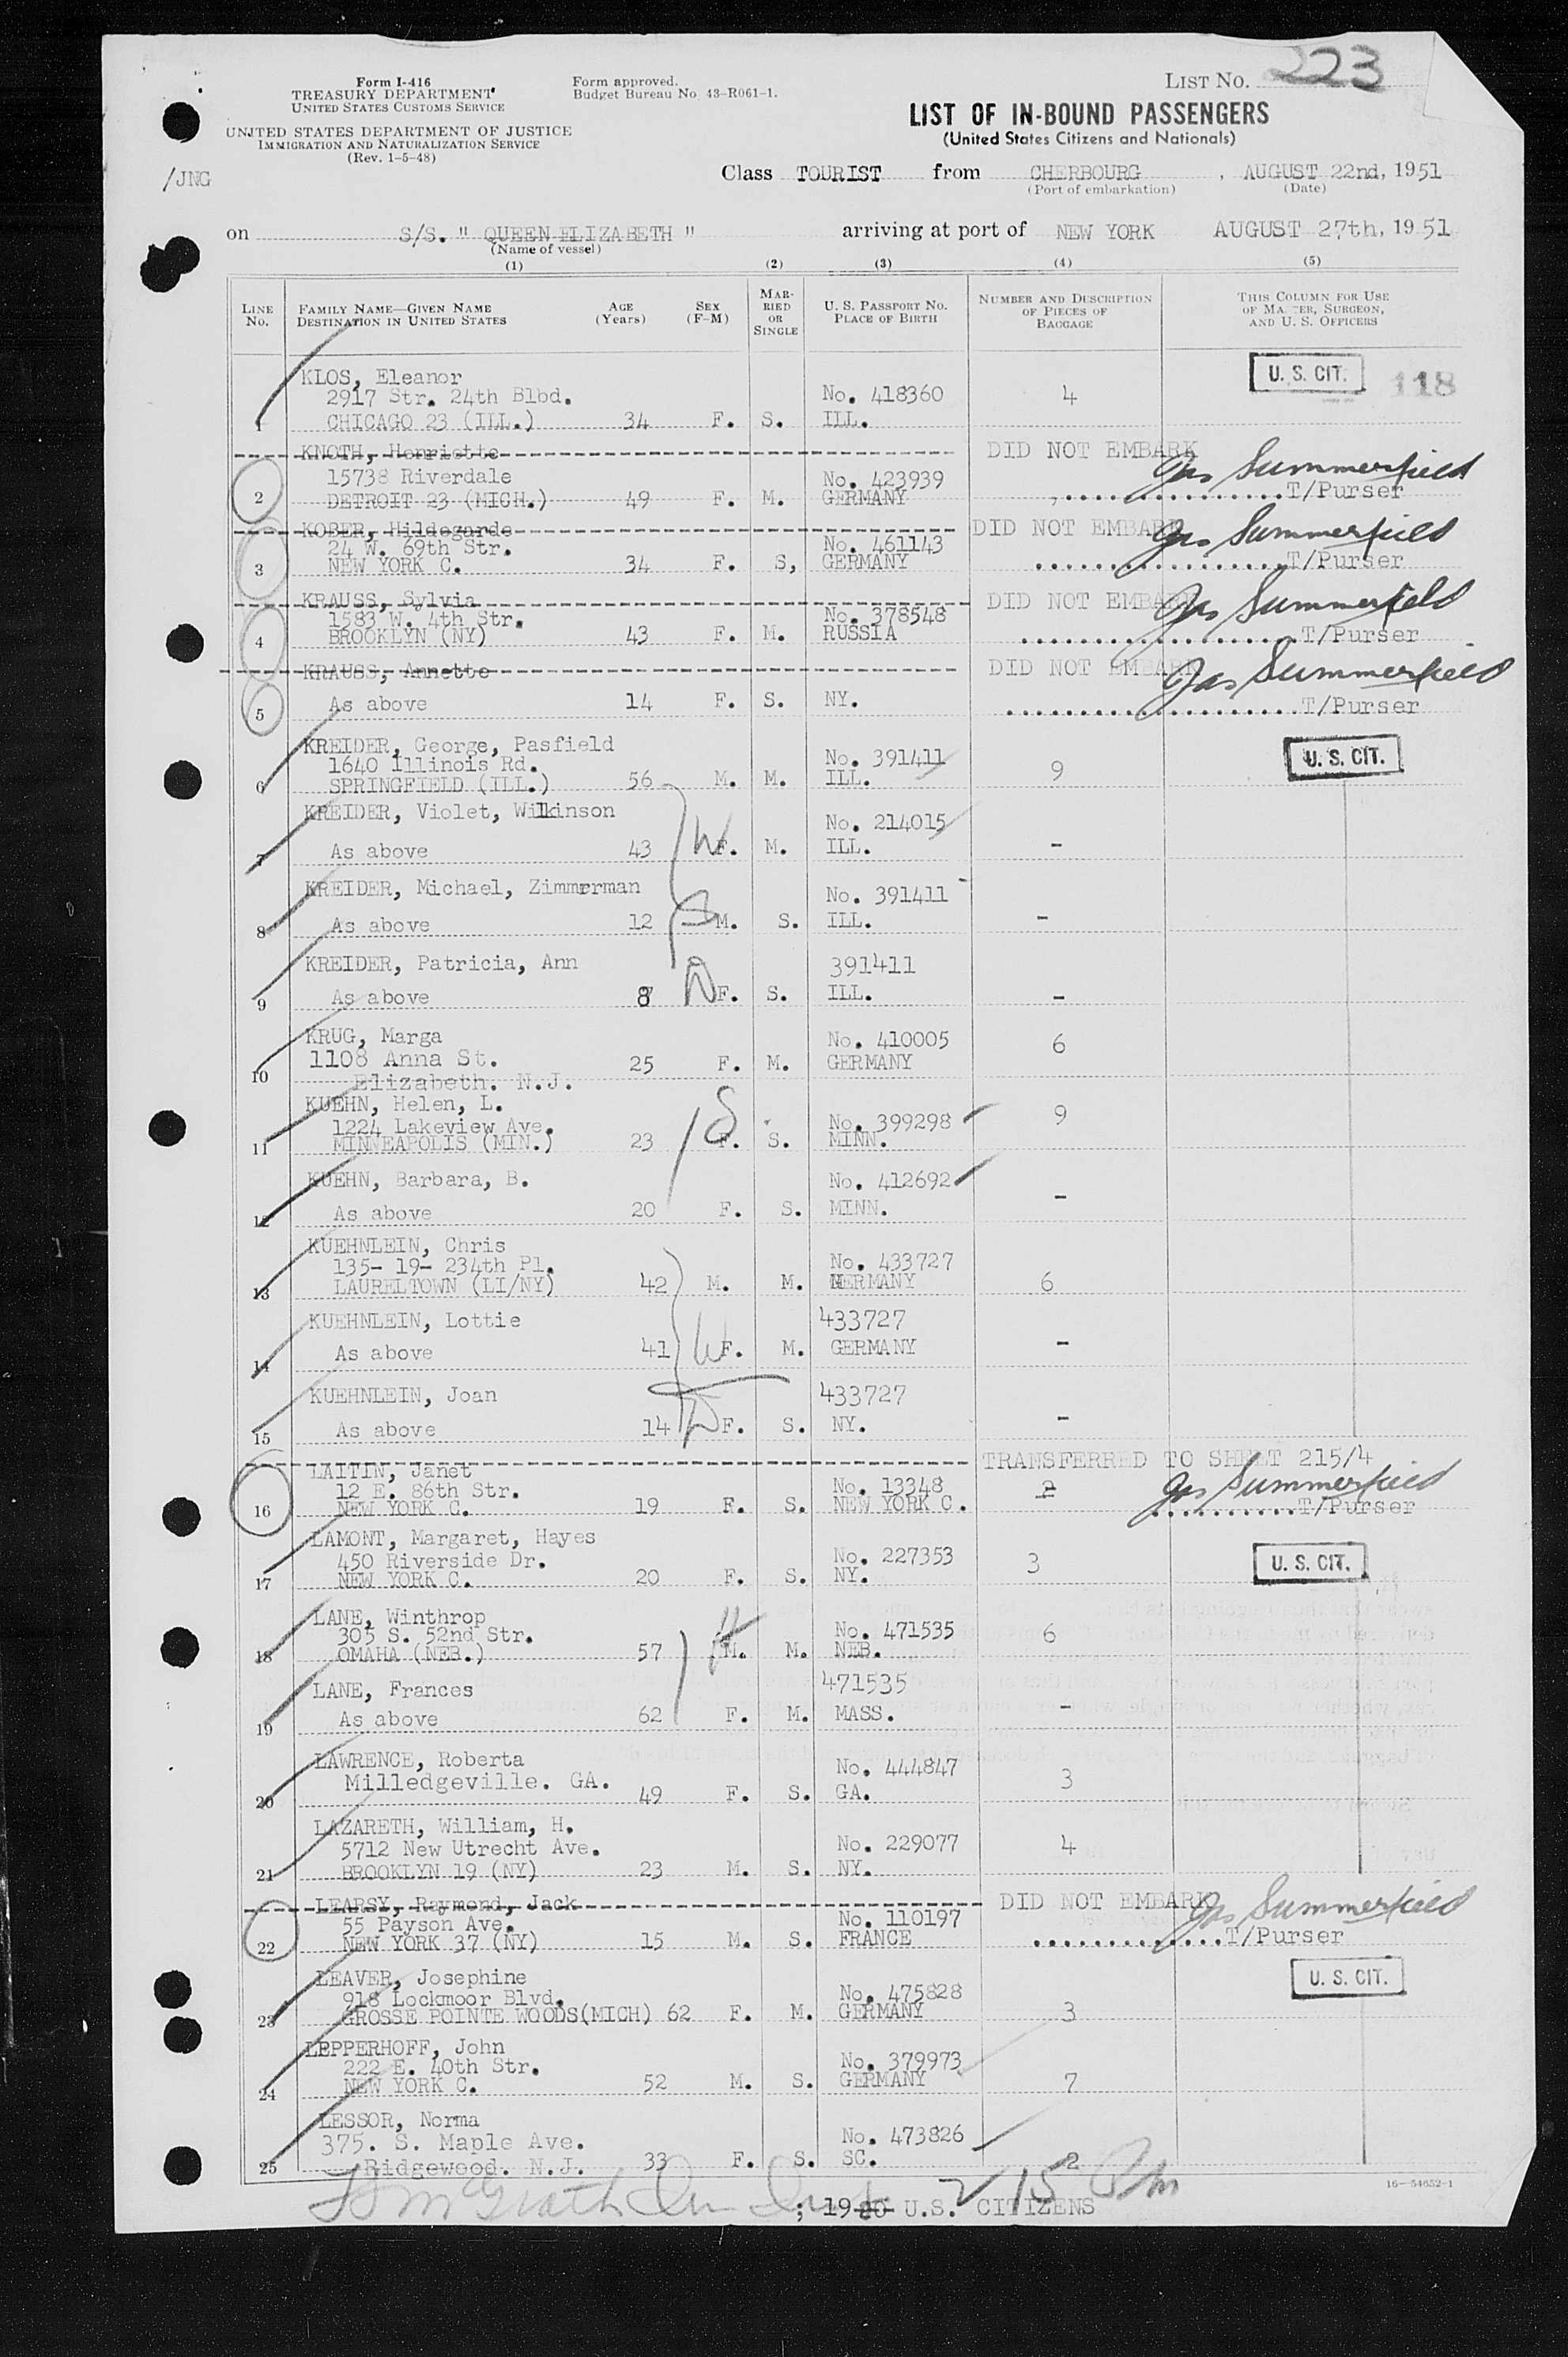 Form I-416
TREASURY DEPARTMENT
UNITED STATES CUSTOMS SERVICE
UNITED STATES DEPARTMENT OF JUSTICE
IMMIGRATION AND NATURALIZATION SERVICE
(Rev. 1-5-48)
/JNG
Form approved.
Budget Bureau No. 43-R061-1.
LIST NO. 223
LIST OF IN-BOUND PASSENGERS
(United States Citizens and Nationals)
Class TOURIST from CHERBOURG , AUGUST 22nd, 1951
(Port of embarkation) (Date)
on S/S. " QUEEN ELIZABETH " arriving at port of NEW YORK AUGUST 27th, 1951
(Name of vessel)
(1) (2) (3) (4) (5)
LINE No. FAMILY NAME—GIVEN NAME DESTINATION IN UNITED STATES AGE (Years) SEX (F-M) MARRIED OR SINGLE U. S. PASSPORT No. PLACE OF BIRTH NUMBER AND DESCRIPTION OF PIECES OF BAGGAGE THIS COLUMN FOR USE OF MASTER, SURGEON, AND U. S. OFFICERS
KLOS, Eleanor U. S. CIT. 118
2917 Str. 24th Blbd. No. 418360 4
1 CHICAGO 23 (ILL.) 34 F. S. ILL.
KNOTH, Henriette DID NOT EMBARK
15738 Riverdale No. 423939 Jas Summerfield
2 DETROIT 23 (MICH.) 49 F. M. GERMANY T/Purser
KOBER, Hildegarde DID NOT EMBARK Jas Summerfield
24 W. 69th Str. No. 461143
3 NEW YORK C. 34 F. S, GERMANY T/Purser
KRAUSS, Sylvia DID NOT EMBARK Jas Summerfield
1583 W. 4th Str. No. 378548
4 BROOKLYN (NY) 43 F. M. RUSSIA T/Purser
KRAUSS, Annette DID NOT EMBARK Jas Summerfield
5 As above 14 F. S. NY. T/Purser
KREIDER, George, Pasfield U. S. CIT.
1640 Illinois Rd. No. 391411 9
6 SPRINGFIELD (ILL.) 56 M. M. ILL.
KREIDER, Violet, Wilkinson No. 214015
7 As above 43 W F. M. ILL. -
KREIDER, Michael, Zimmrrman No. 391411
8 As above 12 S M. S. ILL. -
KREIDER, Patricia, Ann 391411
9 As above 8 D F. S. ILL. -
KRUG, Marga No. 410005 6
1108 Anna St.
10 Elizabeth. N.J. 25 F. M. GERMANY
KUEHN, Helen, L. 9
1224 Lakeview Ave. No. 399298
11 MINNEAPOLIS (MIN.) 23 S F. S. MINN.
KUEHN, Barbara, B. No. 412692
12 As above 20 F. S. MINN. -
KUEHNLEIN, Chris
135- 19- 234th Pl. No. 433727
13 LAURELTOWN (LI/NY) 42 M. M. GERMANY 6
KUEHNLEIN, Lottie 433727
14 As above 41 W F. M. GERMANY -
KUEHNLEIN, Joan 433727
15 As above 14 D F. S. NY. -
LAITIN, Janet TRANSFERRED TO SHEET 215/4
12 E. 86th Str. No. 13348 2 Jas Summerfield
16 NEW YORK C. 19 F. S. NEW YORK C. T/Purser
LAMONT, Margaret, Hayes
450 Riverside Dr. No. 227353 3 U. S. CIT.
17 NEW YORK C. 20 F. S. NY.
LANE, Winthrop
305 S. 52nd Str. No. 471535 6
18 OMAHA (NEB.) 57 H M. M. NEB.
LANE, Frances 471535
19 As above 62 F. M. MASS. -
LAWRENCE, Roberta No. 444847
Milledgeville. GA. 3
20 49 F. S. GA.
LAZARETH, William, H.
5712 New Utrecht Ave. No. 229077 4
21 BROOKLYN 19 (NY) 23 M. S. NY.
LEARSY, Raymond, Jack DID NOT EMBARK Jas Summerfield
55 Payson Ave. No. 110197
22 NEW YORK 37 (NY) 15 M. S. FRANCE T/Purser
LEAVER, Josephine U. S. CIT.
918 Lockmoor Blvd. No. 475828
23 GROSSE POINTE WOODS(MICH) 62 F. M. GERMANY 3
LEPPERHOFF, John
222 E. 40th Str. No. 379973
24 NEW YORK C. 52 M. S. GERMANY 7
LESSOR, Norma
375. S. Maple Ave. No. 473826
25 Ridgewood. N.J. 33 F. S. SC. 2
16—54652-1
; 19 20 U.S. CITIZENS
2 15 Pm